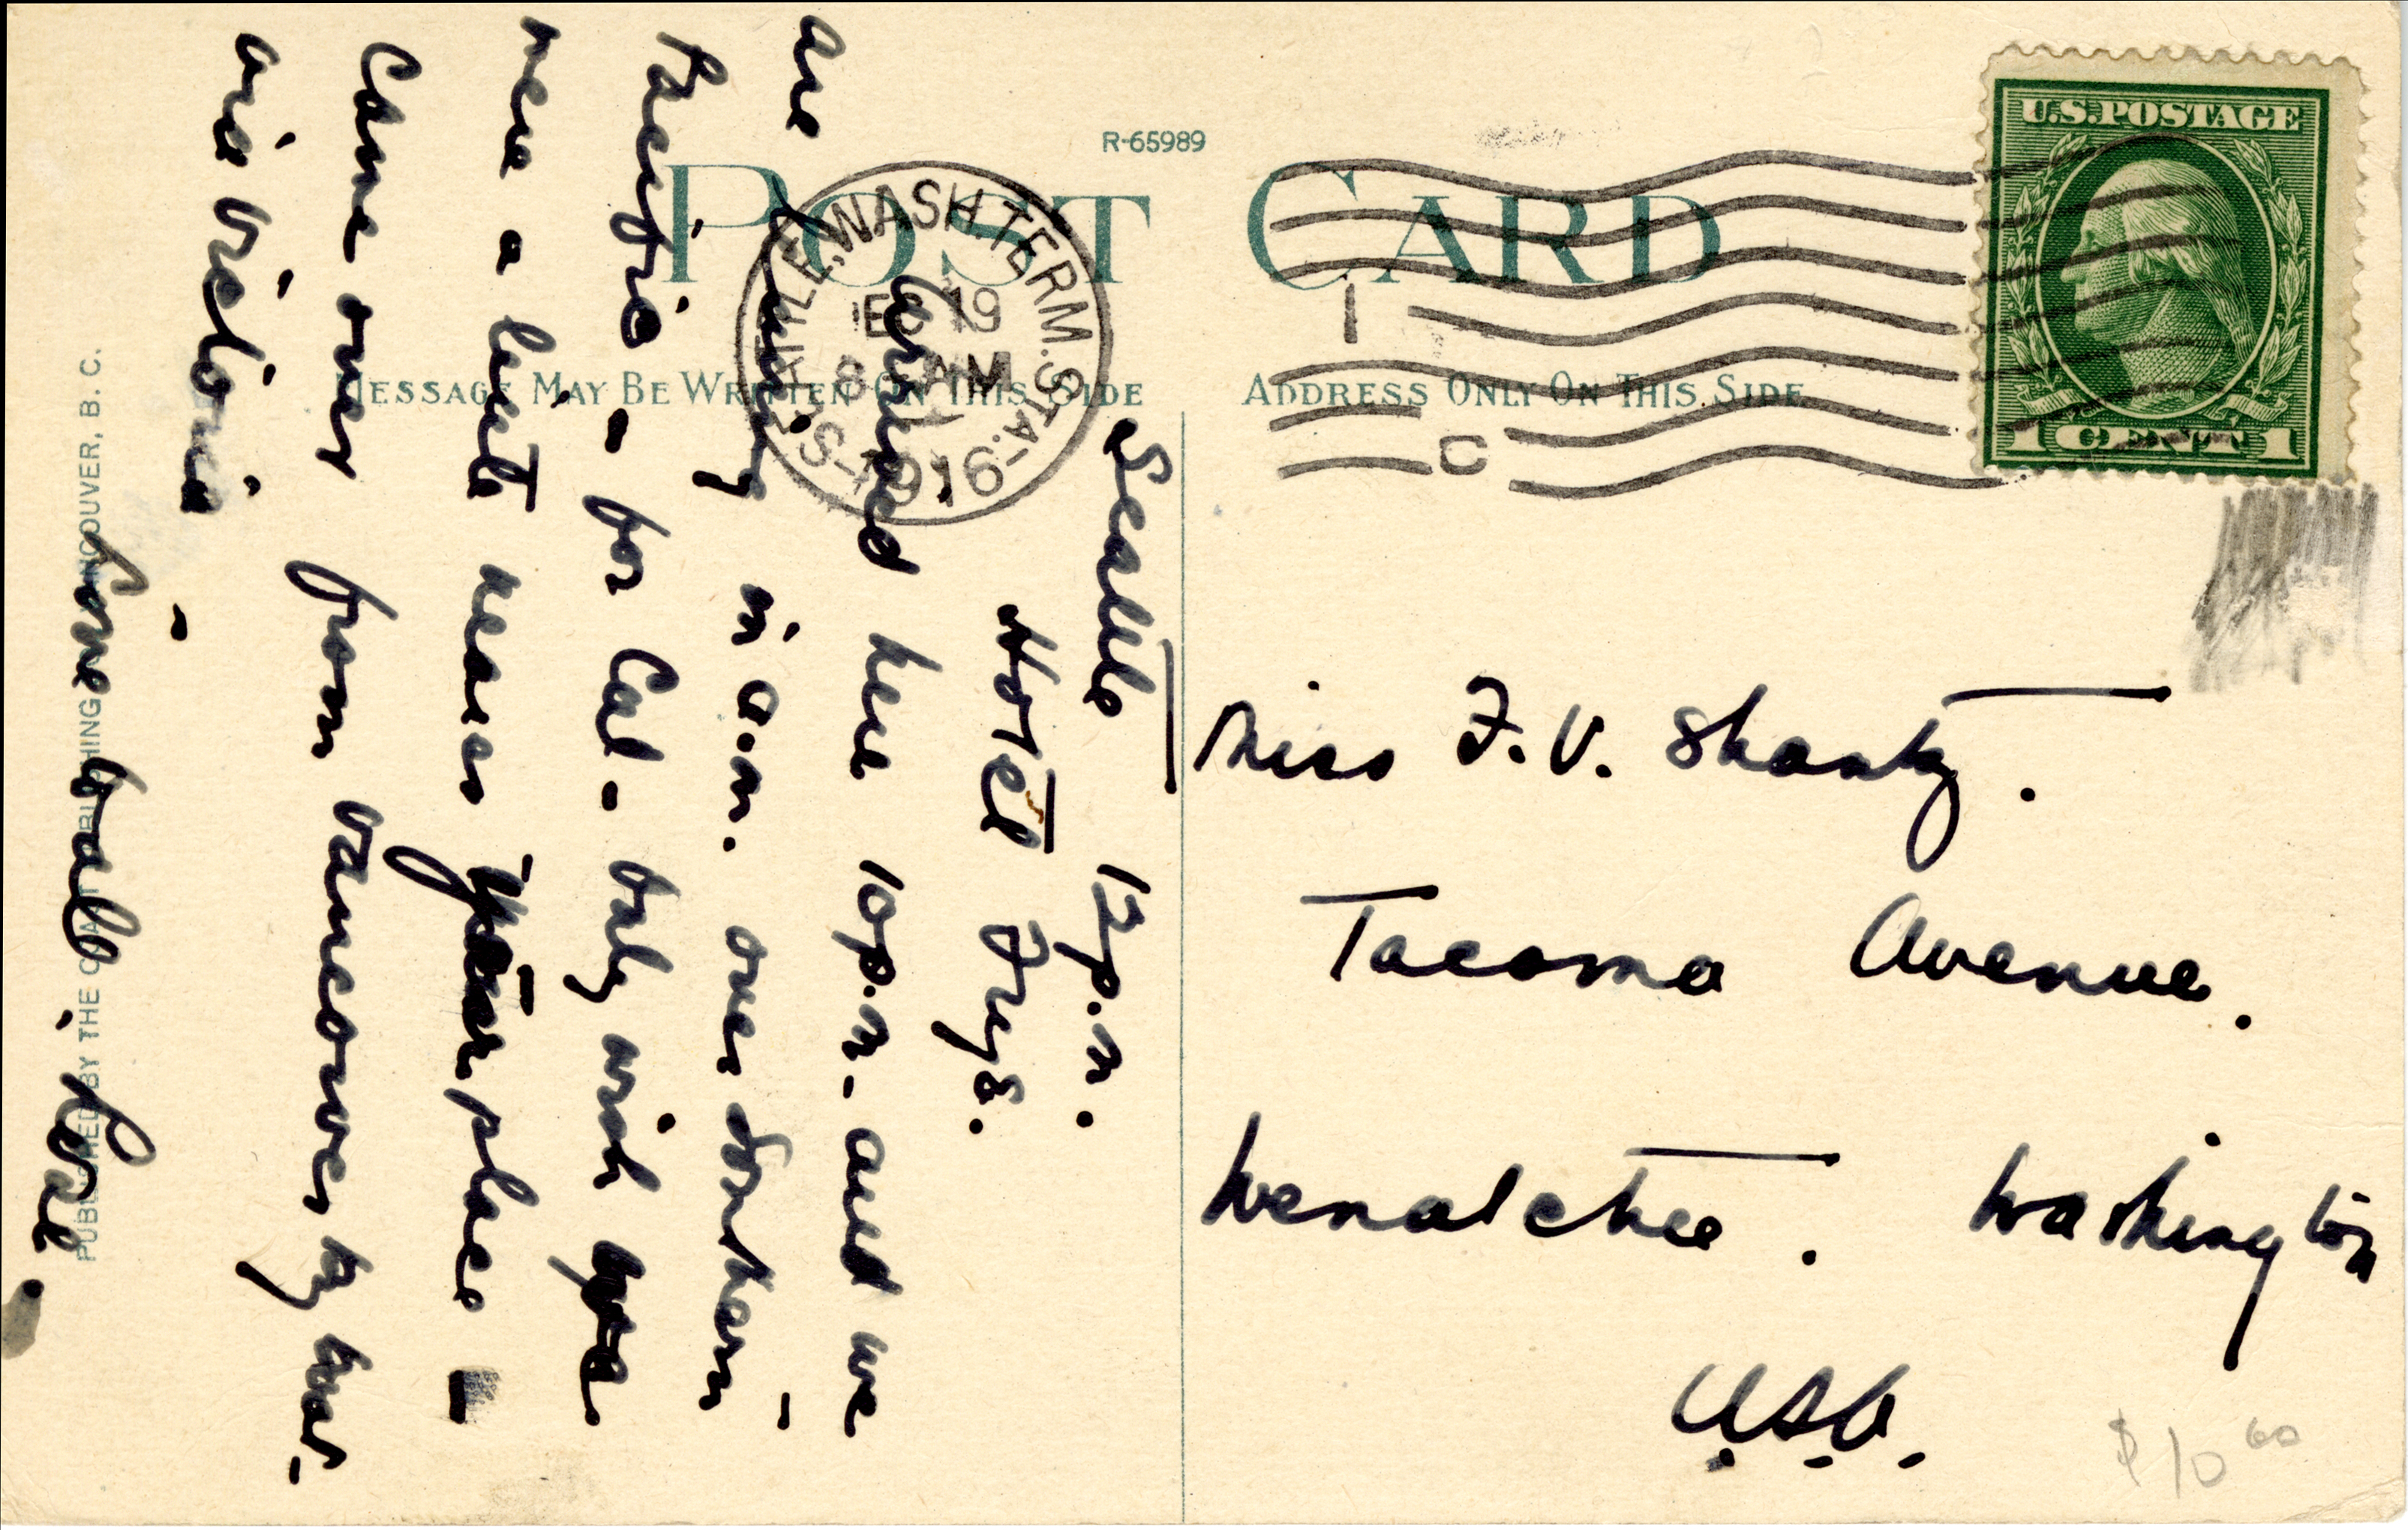 R-65989
POST CARD
MESSAGE MAY BE WRITTEN ON THIS SIDE
ADDRESS ONLY ON THIS SIDE
SEATTLE, WASH. TERM. STA.
19
8 AM
1916
U.S. POSTAGE
1 CENT 1
Seattle 12 p.m.
Hotel Frye.
Arrived here 10 p.m. and we
are leaving in a.m. over Southern
Pacific - for Cal - Only wish you
were a little nearer your place -
Came over from Vancouver by way
via Victoria -
Love to all.
PUBLISHED BY THE COAST PUBLISHING VANCOUVER, B. C.
Miss F. V. Shantz.
Tacoma Avenue.
Wenatchee. Washington
U.S.A.
$10 00